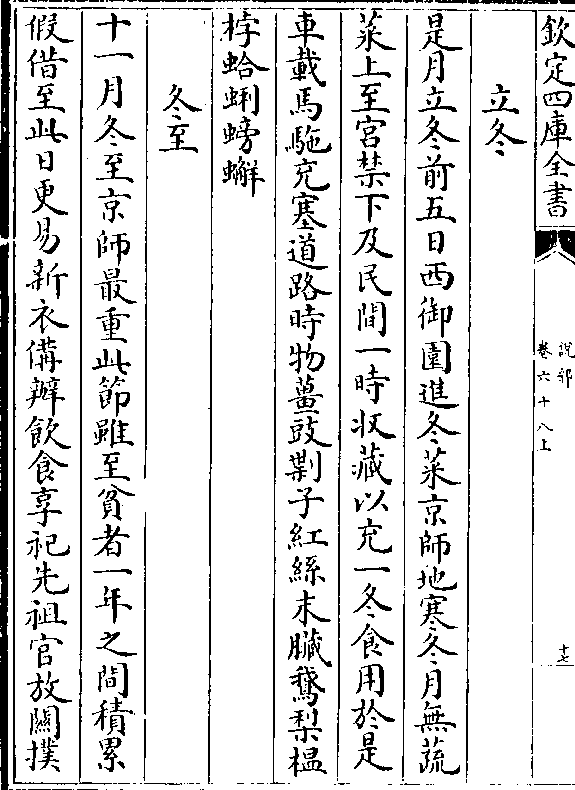 欽定四庫全書
說郛
卷六十八上
十七
立冬
是月立冬前五日西御園進冬菜京師地寒冬月無蔬
菜上至宮禁下及民間一時收藏以充一冬食用於是
車載馬駞充塞道路時物薑豉𠟠子紅絲末臟鵝梨榲
桲蛤蜊螃蠏
冬至
十一月冬至京師最重此節雖至貧者一年之間積累
假借至此日更易新衣備辦飲食享祀先祖官放關撲